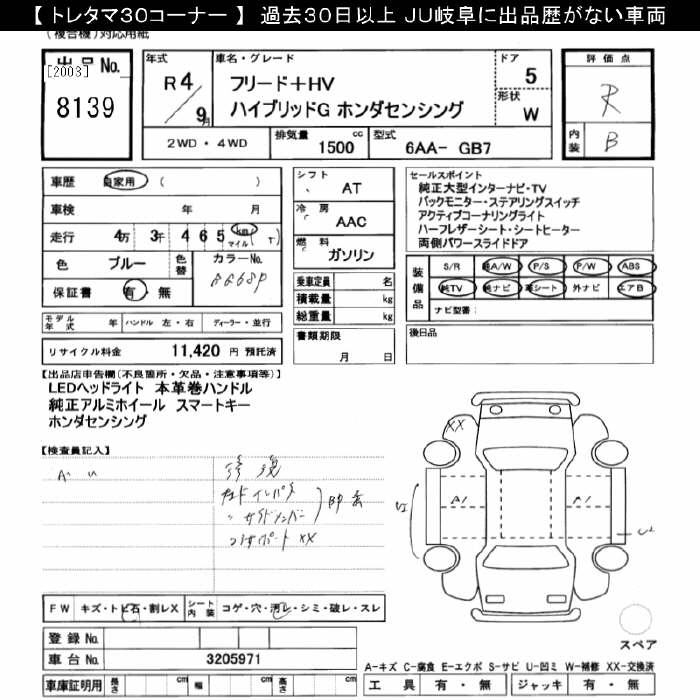 【 トレタマ30コーナー 】 過去30日以上 JU岐阜に出品歴がない車両
(複合機)対応用紙
出品No. [2003] 8139
年式 R4/9月
車名・グレード
フリード+HV
ハイブリッドG ホンダセンシング
ドア 5
形状 W
評価点 R
内装 B
2WD・4WD 排気量 1500 cc 型式 6AA- GB7
車歴 自家用 ( )
車検 年 月
走行 4万3千465 km マイル
色 ブルー 色替 カラーNo.
保証書 有・無
シフト AT
冷房 AAC
燃料 ガソリン
乗車定員 名
積載量 kg
総重量 kg
セールスポイント
純正大型インターナビ・TV
バックモニター・ステアリングスイッチ
アクティブコーナリングライト
ハーフレザーシート・シートヒーター
両側パワースライドドア
装備品 S/R 純A/W P/S P/W ABS
純TV 純ナビ 革シート 外ナビ エアB
ナビ型番:
モデル年式 年 ハンドル 左・右 ディーラー・並行
リサイクル料金 11,420 円 預託済
書類期限 月 日
後日品
【出品店申告欄(不良箇所・欠品・注意事項等)】
LEDヘッドライト 本革巻ハンドル
純正アルミホイール スマートキー
ホンダセンシング
【検査員記入】
A. U
修復
XX
XX
A1
UI
FW キズ・トビ石・割レX シート内装 コゲ・穴・汚レ・シミ・破レ・スレ
登録No.
車台No. 3205971
車庫証明用 長さ cm 幅 cm 高さ cm
スペア
A-キズ C-腐食 E-エクボ S-サビ U-凹ミ W-補修 XX-交換済
工具 有・無 ジャッキ 有・無